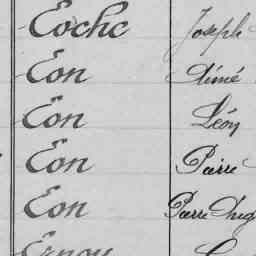 Eoche Joseph
Eon Aimé
Eon Léon
Eon Pierre
Eon Pierre
Ernou